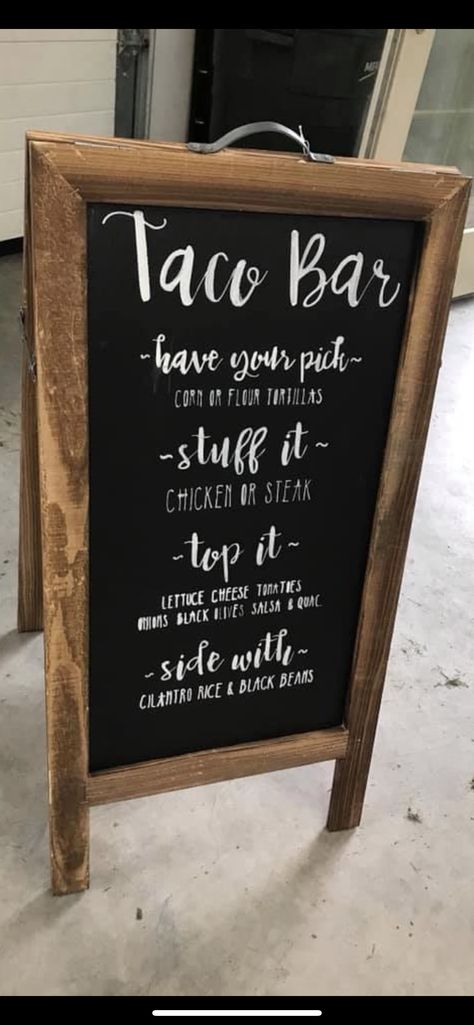 Taco Bar
~have your pick~
CORN OR FLOUR TORTILLAS
~stuff it~
CHICKEN OR STEAK
~top it~
LETTUCE CHEESE TOMATOES
ONIONS BLACK OLIVES SALSA & GUAC
~side with~
CILANTRO RICE & BLACK BEANS